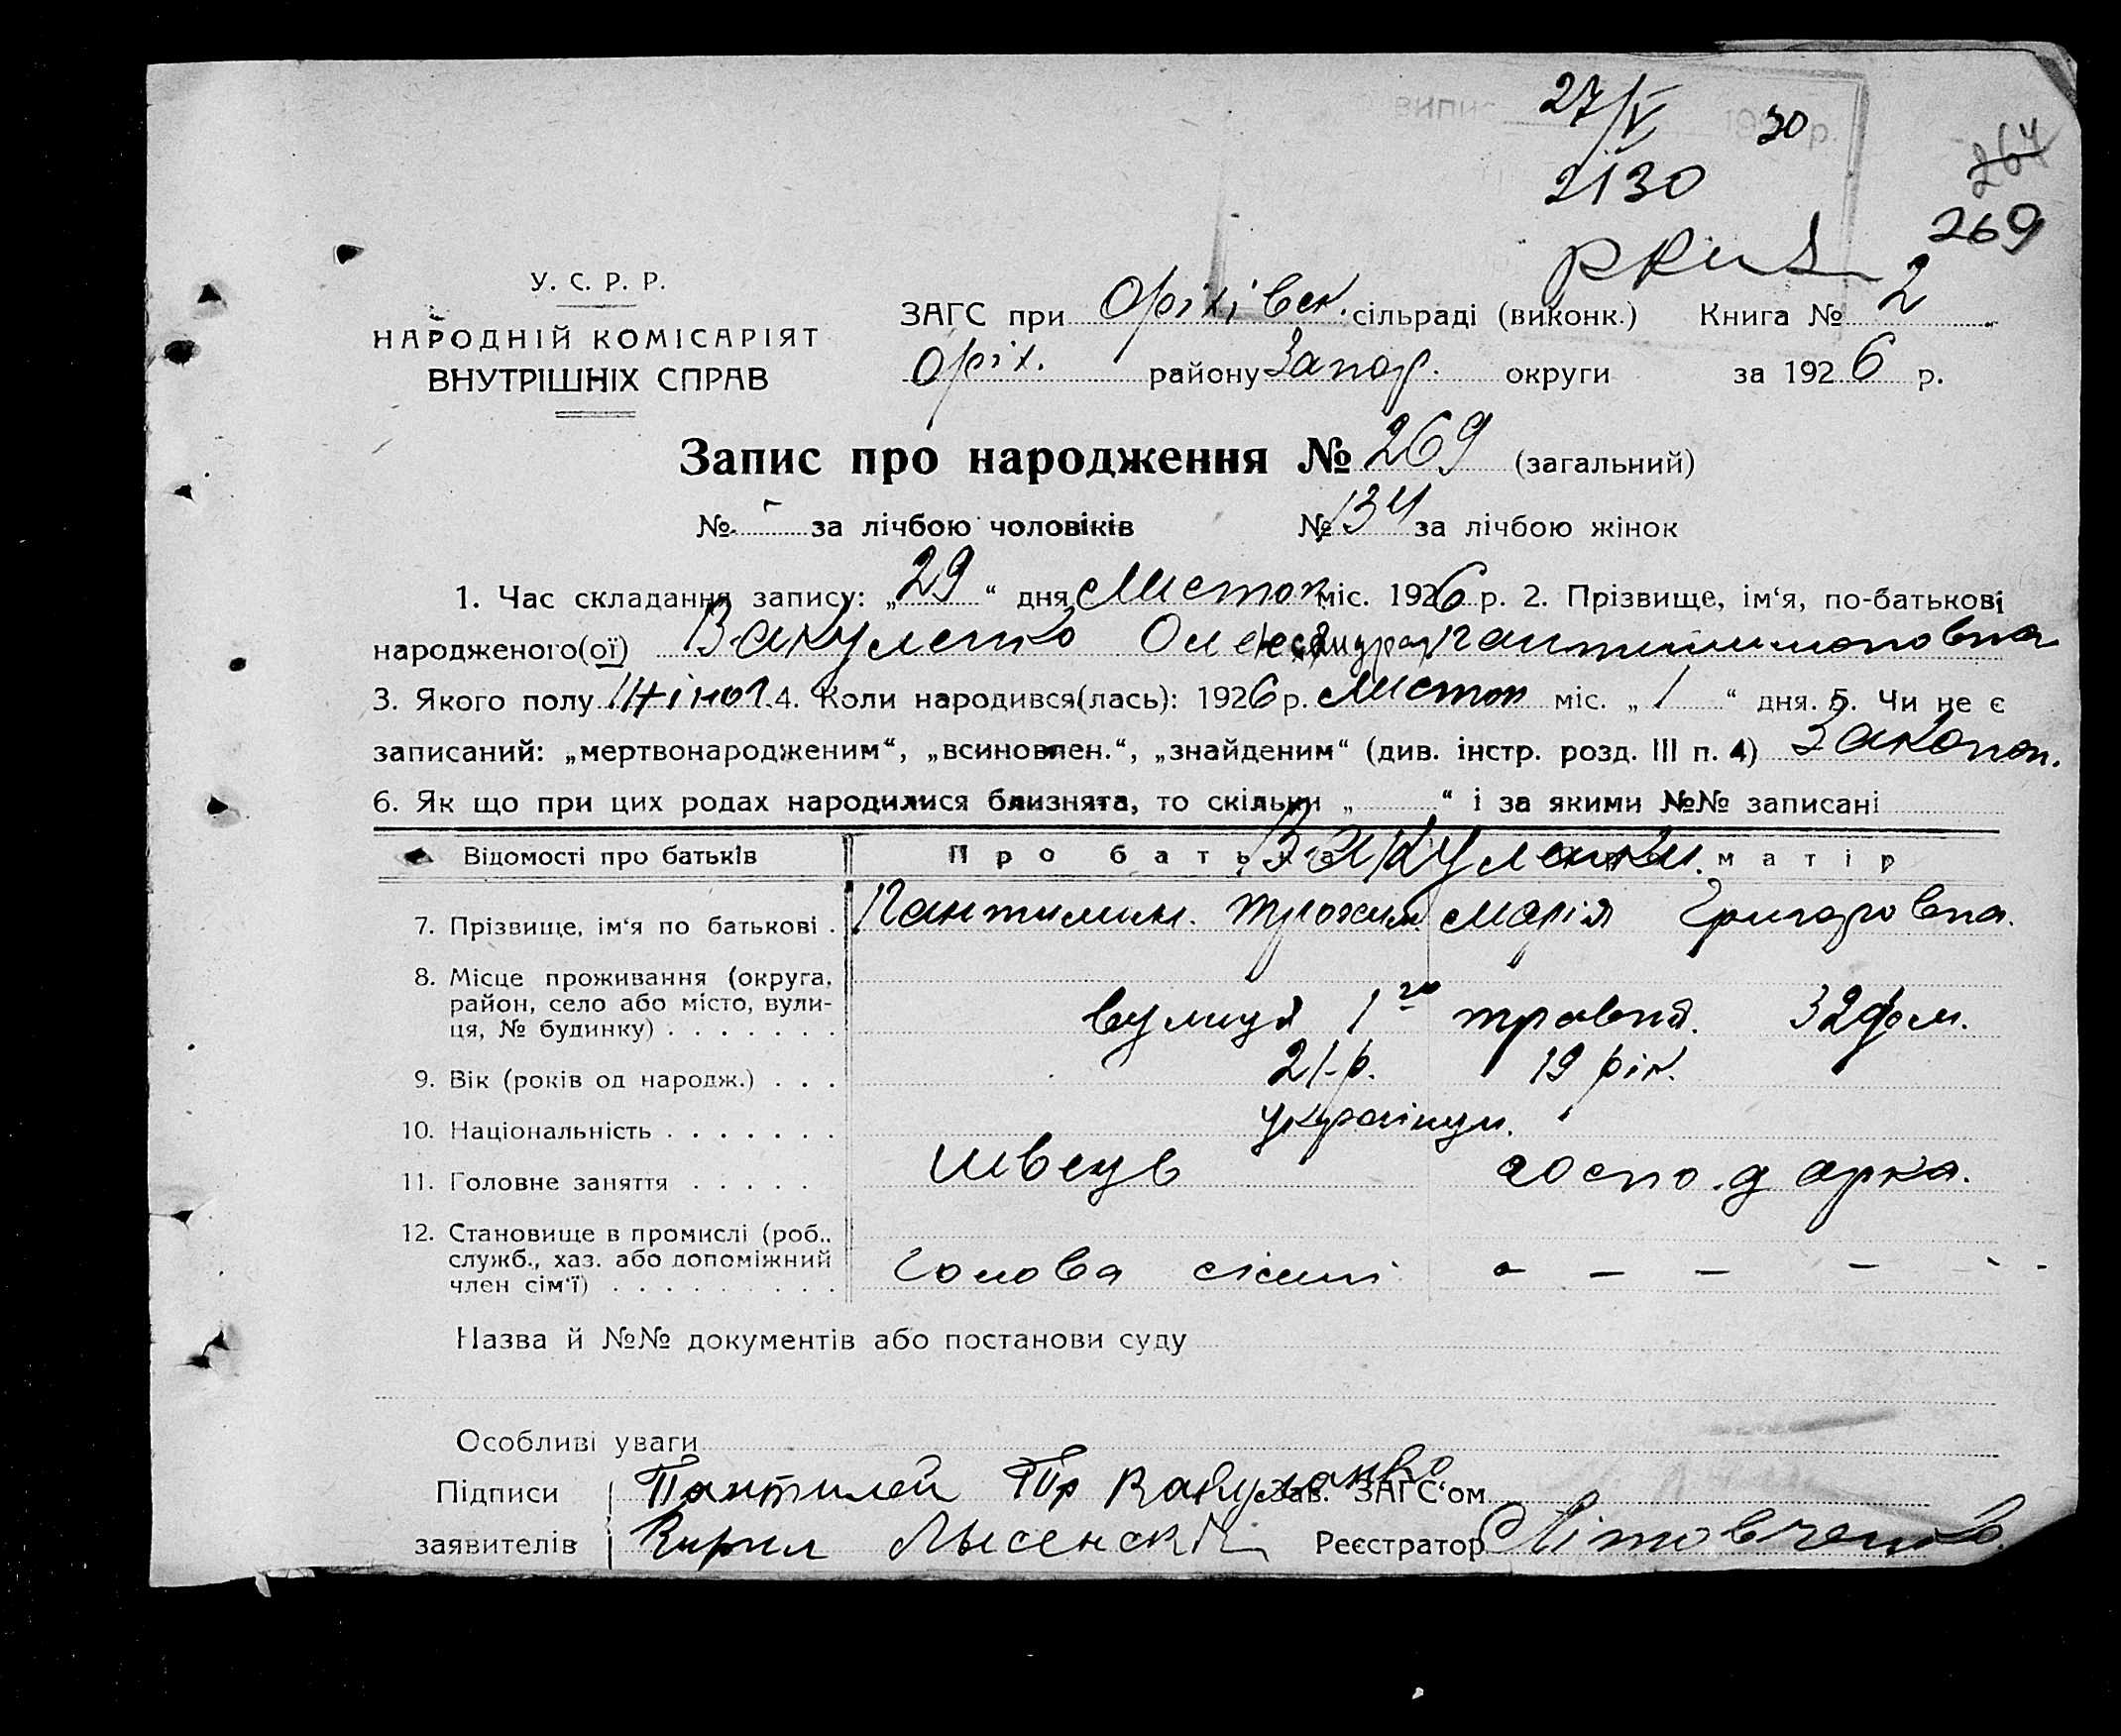 27/V 30
2130
264
269
У. С. Р. Р.
НАРОДНІЙ КОМІСАРІЯТ
ВНУТРІШНІХ СПРАВ
ЗАГС при Оріхівск. сільраді (виконк.) Книга № 2
Оріх. району Запор. округи за 1926 р.
Запис про народження № 269 (загальний)
№ - за лічбою чоловіків № 134 за лічбою жінок
1. Час складання запису: „29“ дня Листоп. міс. 1926 р. 2. Прізвище, ім'я, по-батькові
народженого(ої) Вакуленко Олександра Пантилимоновна
3. Якого полу Жіноч. 4. Коли народився(лась): 1926 р. Листоп міс. „1“ дня. 5. Чи не є
записаний: „мертвонародженим“, „всиновлен.“, „знайденим“ (див. інстр. розд. III п. 4) Законон.
6. Як що при цих родах народилися близнята, то скільки „ “ і за якими №№ записані
Відомості про батьків Про батька матір
Вакуленки.
7. Прізвище, ім'я по батькові . Пантилим. Трохим. Марія Григоровна.
8. Місце проживання (округа,
район, село або місто, вули-
ця, № будинку) . . . . . . . вулиця 1го травня. 32 дом.
9. Вік (років од народж.) . . . 21-р. 19 рік.
10. Національність . . . . . . . українци.
11. Головне заняття . . . . . швець господарка.
12. Становище в промислі (роб.,
служб., хаз. або допоміжний
член сім'ї) . . . . . . . . . Голова сімї - - - - -
Назва й №№ документів або постанови суду
Особливі уваги
Підписи Пантилей Тр Вакуленко Зав. ЗАГС'ом
заявителів Кирил Лысенский Реєстратор Літовченко.